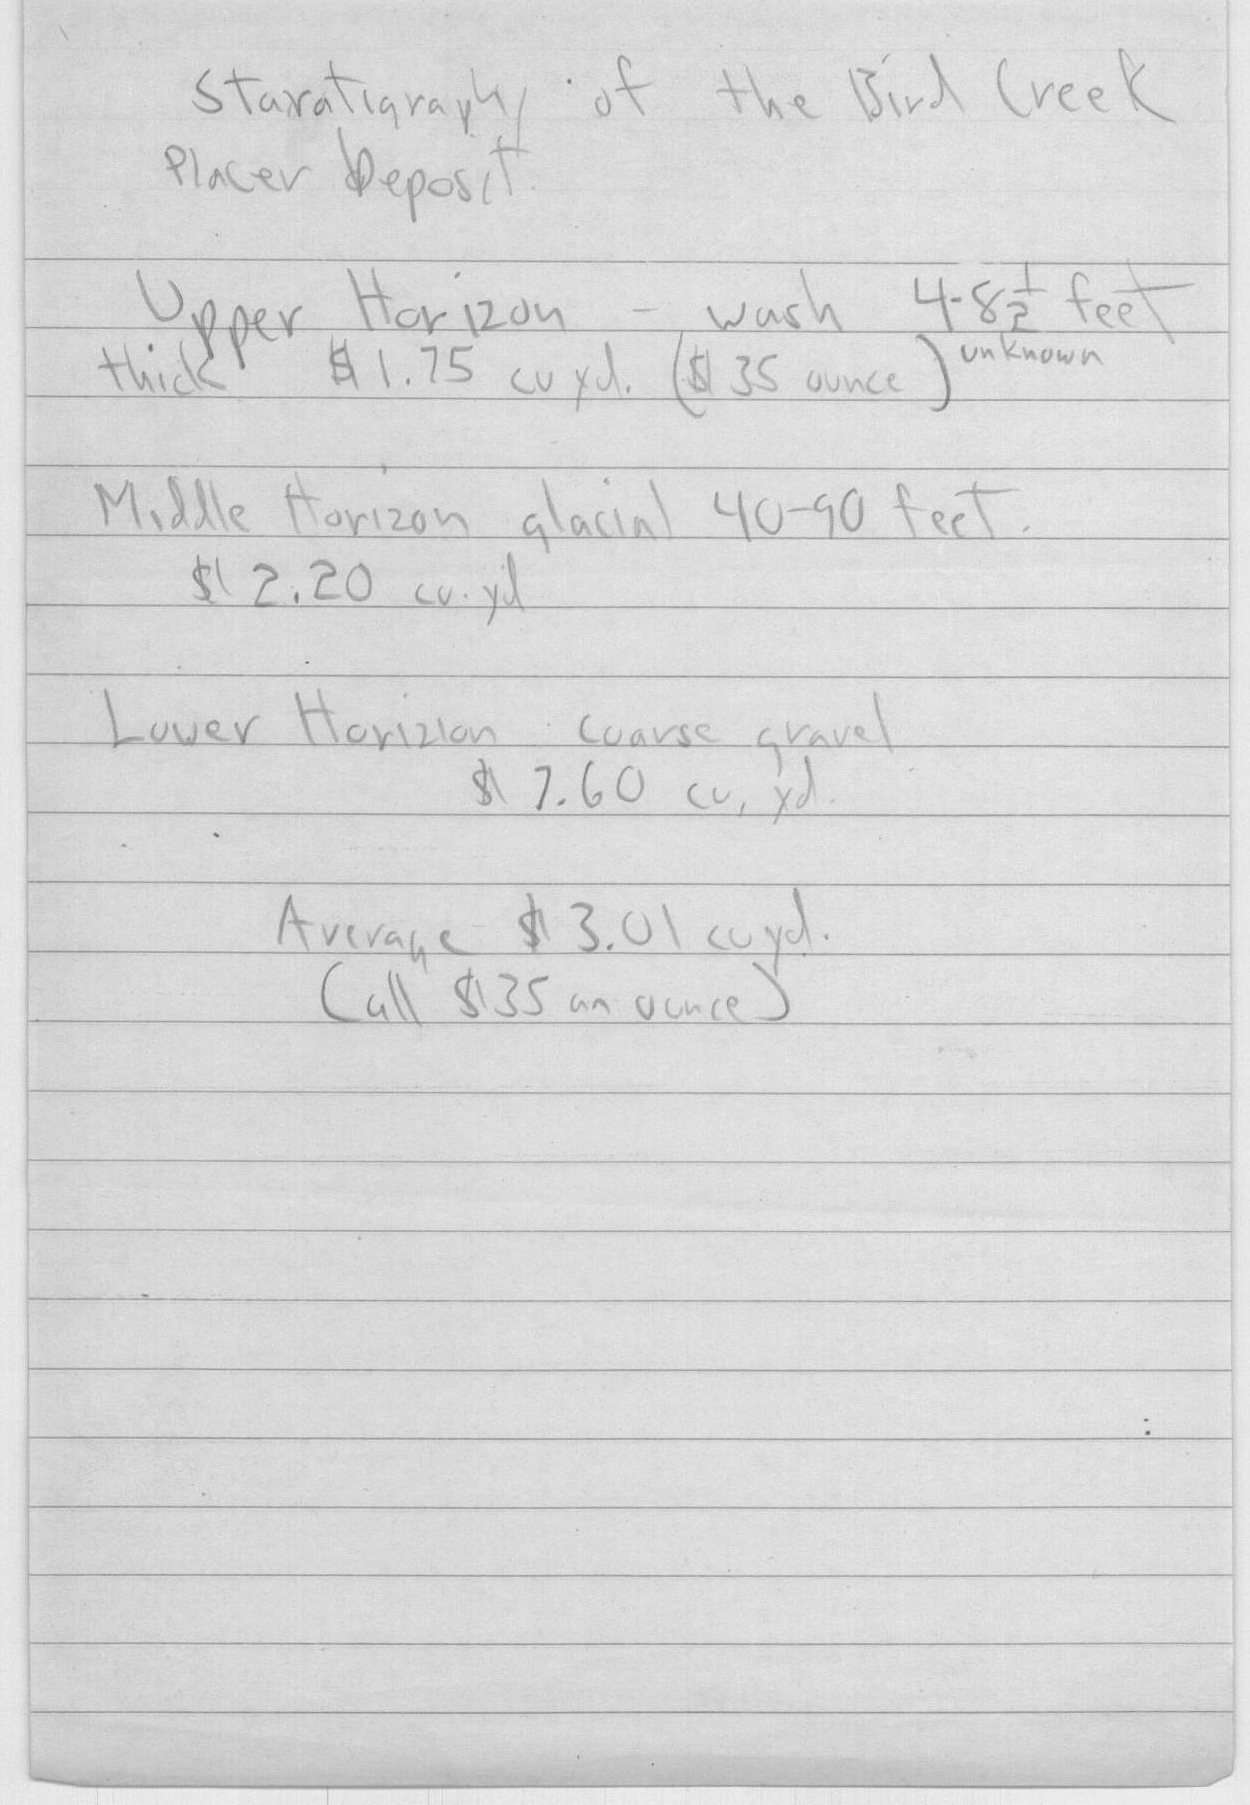 Staratigraphy of the Bird Creek
Placer Deposit.
Upper Horizon - wash 4-8½ feet
thick $1.75 cu yd. ($35 ounce) unknown
Middle Horizon glacial 40-90 feet.
$2.20 cu. yd
Lower Horizion coarse gravel
$7.60 cu, yd.
Average $3.01 cu yd.
(all $35 an ounce)